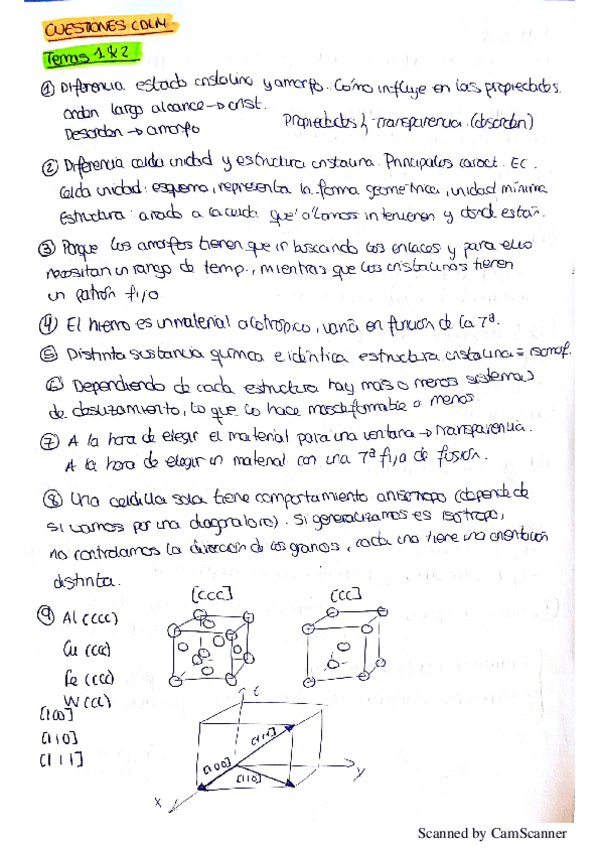 CUESTIONES CDLM
Temas 1 & 2
① Diferencia estado cristalino y amorfo. Cómo influye en las propiedades.
orden largo alcance → crist.
Desorden → amorfo
Propiedades transparencia (desorden)
② Diferencia celda unidad y estructura cristalina. Principales caract. EC.
Celda unidad: esquema, representa la forma geométrica, unidad mínima
Estructura: a la celda que átomos intervienen y donde están.
③ Porque los amorfos tienen que ir buscando los enlaces y para ello
necesitan un rango de temp., mientras que los cristalinos tienen
un patrón fijo
④ El hierro es un material alotrópico, varía en función de la Tª.
⑤ Distinta sustancia química e idéntica estructura cristalina = isomof.
⑥ Dependiendo de cada estructura hay mas o menos sistemas
de deslizamiento, lo que lo hace mas deformable o menos
⑦ A la hora de elegir el material para una ventana → transparencia.
A la hora de elegir un material con una Tª fija de fusión.
⑧ Una celdilla sola tiene comportamiento anisotropo (depende de
si vamos por una diagonal o ). Si generalizamos es isotropo,
no controlamos la dirección de los granos, cada uno tiene una orientación
distinta.
[CCC] (CC)
⑨ Al (CCC)
Cu (CC)
Fe (CC)
W (CC)
[100]
[110]
[111]
[111]
[100]
[110]
X
y
Scanned by CamScanner